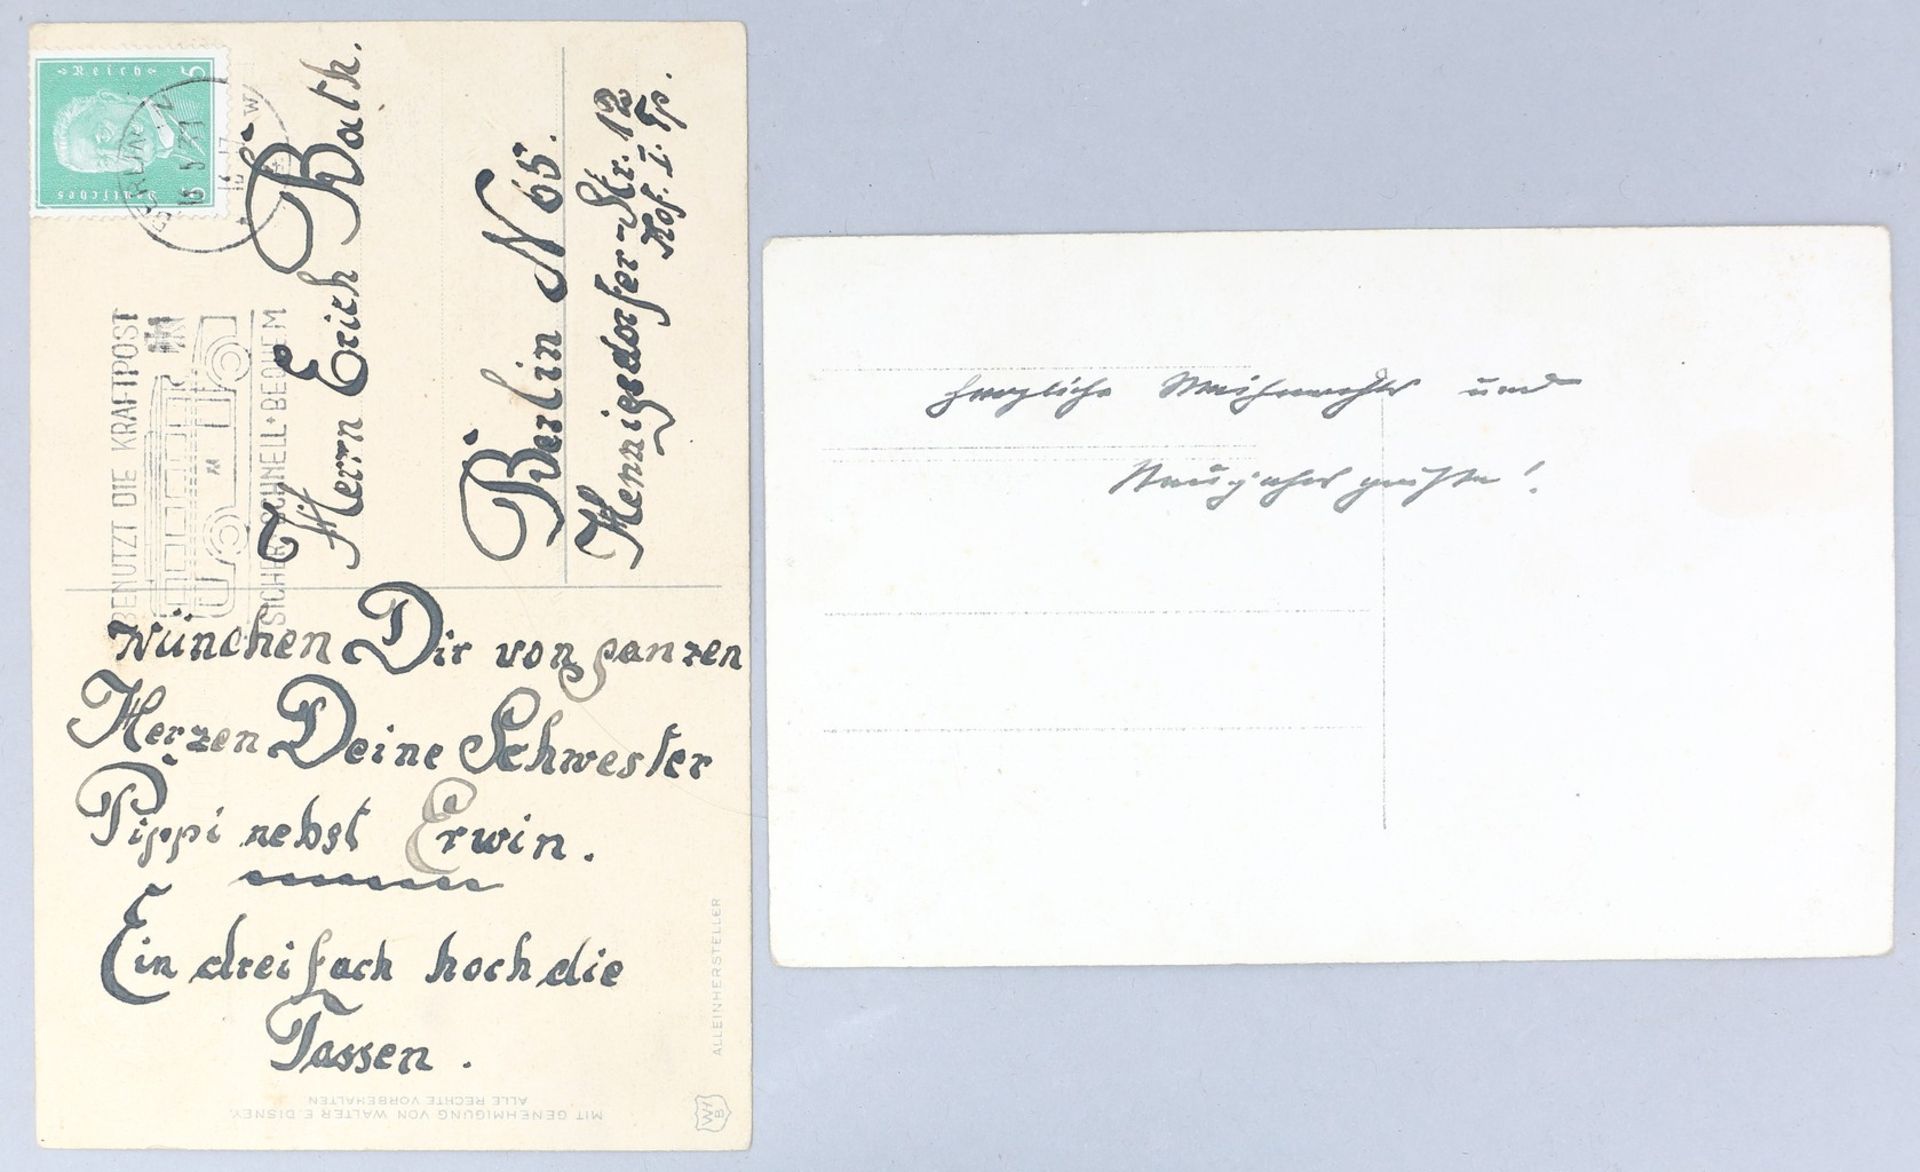 Deutsches Reich 5
BERLIN N
BENUTZT DIE KRAFTPOST
SICHER·SCHNELL·BEQUEM
Herrn Erich Rath.
Berlin N 65.
Hennigsdorfer-Str. 12
Hof. I. Tp.
Wünchen Dir von ganzen
Herzen Deine Schwester
Pippi nebst Erwin.
Ein dreifach hoch die
Tassen.
MIT GENEHMIGUNG VON WALTER E. DISNEY.
ALLE RECHTE VORBEHALTEN
ALLEINHERSTELLER
WHB
herzliche Weihnachts und
Neujahrsgrüße!